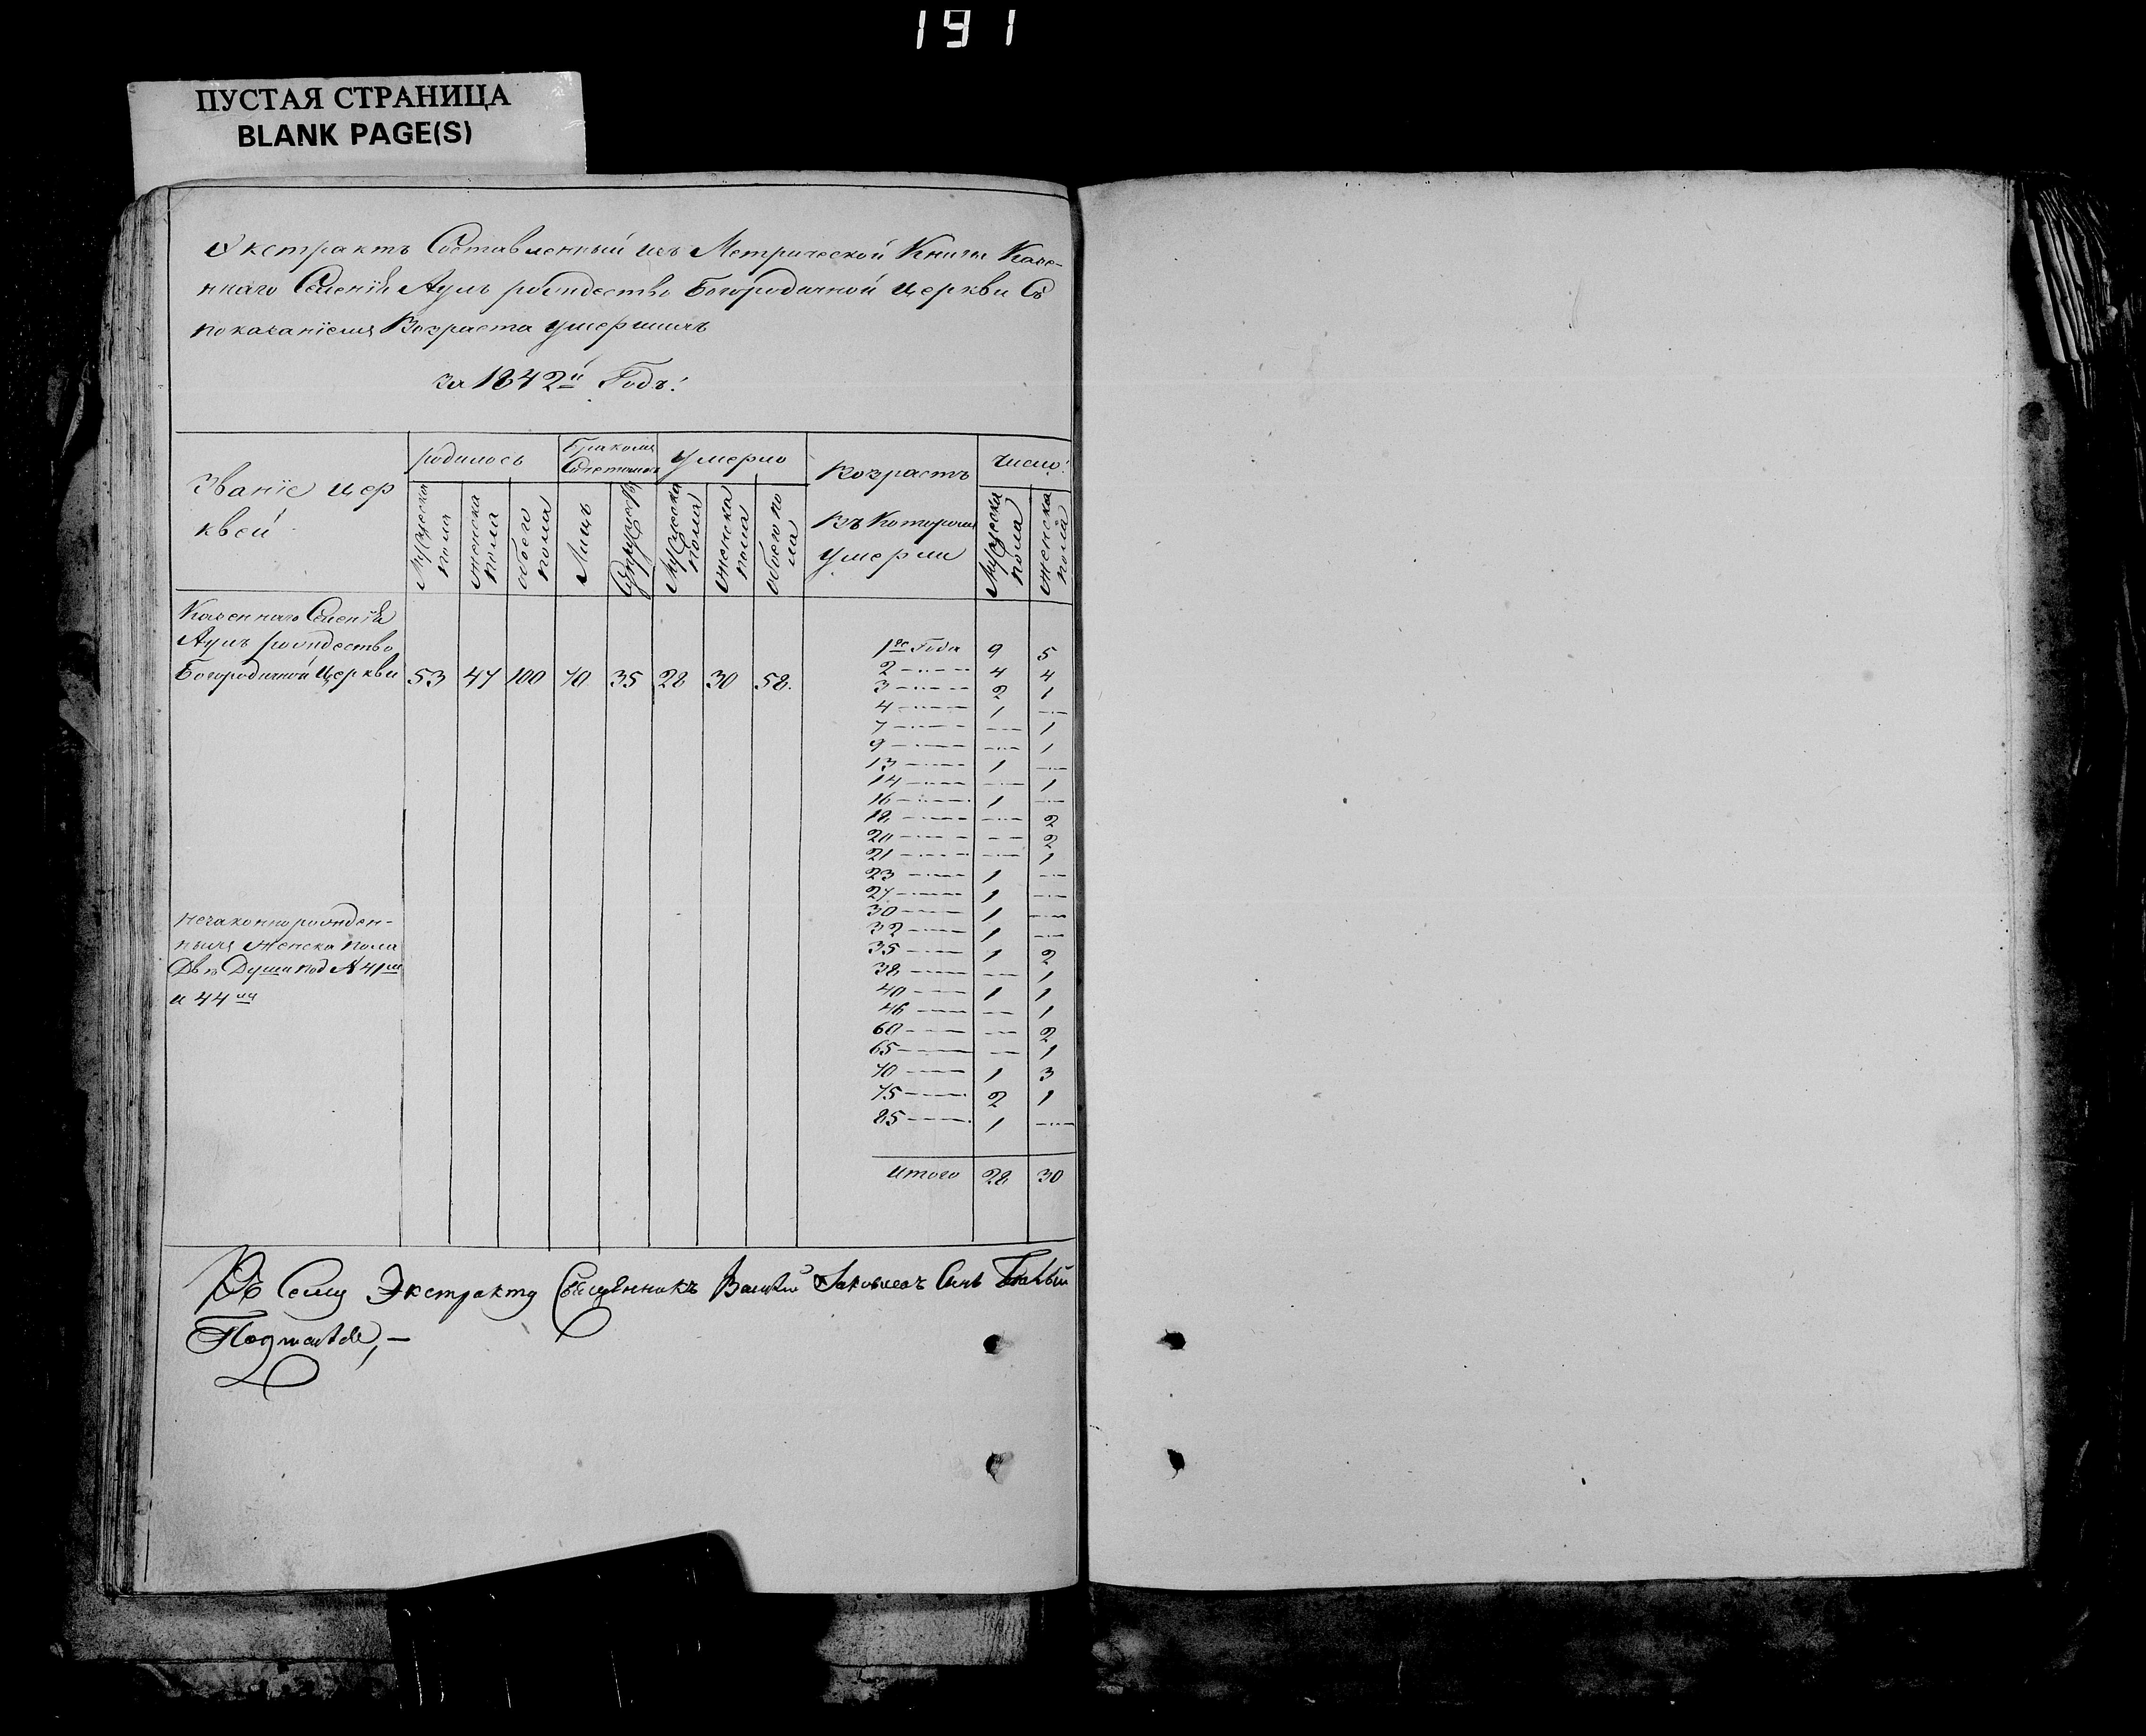 191
ПУСТАЯ СТРАНИЦА
BLANK PAGE(S)
Экстрактъ Составленный изъ Метрической Книги Казе-
ннаго Селенія Аулъ рождество Богородичной церкви Съ
показаніемъ Возраста умершихъ
за 1842й Годъ.
Званіе цер
квей
родилось
Бракомъ
Сочеталось
умерло
Возрастъ
Въ Которомъ
умерли
число
Мужеска пола
женска пола
обоего пола
Лицъ
Супружествъ
Мужеска пола
женска пола
обоего по
ла
Мужеска пола
женска пола
Казеннаго Селенія
Аулъ рождество
Богородичной Церкви 53 47 100 70 35 28 30 58.
1го Года 9 5
2 4 4
3 2 1
4 1 —
7 — 1
9 — 1
13 1 —
14 — 1
16 1 —
18 — 2
20 — 2
21 — 1
23 1 —
27 1 —
30 1 —
32 1 —
35 1 2
38 — 1
40 1 1
46 — 1
60 — 2
65 — 1
70 1 3
75 2 1
85 1 —
итого 28 30
незаконнорожден-
ныхъ женска пола
Двѣ Души под №41м
и 44м
Къ Сему Экстракту Священникъ Василій Іаковлевъ Сынъ